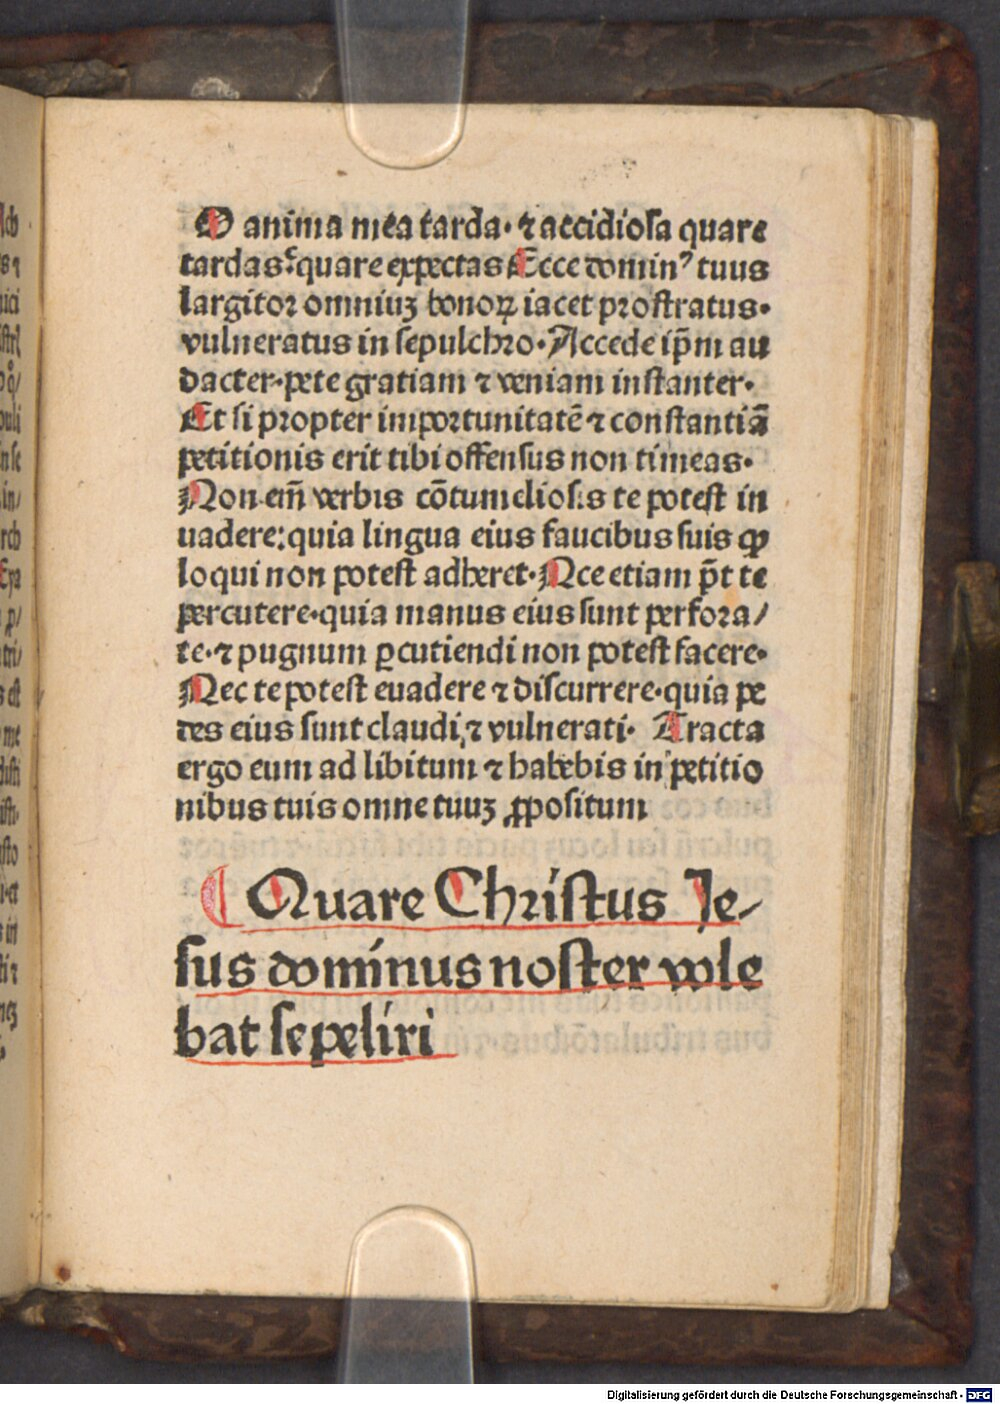 O anima mea tarda· ⁊ accidiosa quare
tardas: quare expectas Ecce dominꝰ tuus
largitor omniuꝫ bonoꝝ iacet prostratus·
vulneratus in sepulchro· Accede ip̄m au
dacter· pete gratiam ⁊ veniam instanter·
Et si propter importunitatē ⁊ constantiā
petitionis erit tibi offensus non timeas·
Non em̄ verbis cōtumeliosis te potest in
uadere: quia lingua eius faucibus suis ꝓ
loqui non potest adheret· Nce etiam p̄t te
percutere· quia manus eius sunt perfora/
te· ⁊ pugnum ꝑcutiendi non potest facere·
Nec te potest euadere ⁊ discurrere· quia pe
des eius sunt claudi, ⁊ vulnerati· Tracta
ergo eum ad libitum ⁊ habebis in petitio
nibus tuis omne tuuꝫ ꝓpositum
¶ Quare Christus Je⸗
sus dominus noster vole
bat sepeliri
Digitalisierung gefördert durch die Deutsche Forschungsgemeinschaft - DFG